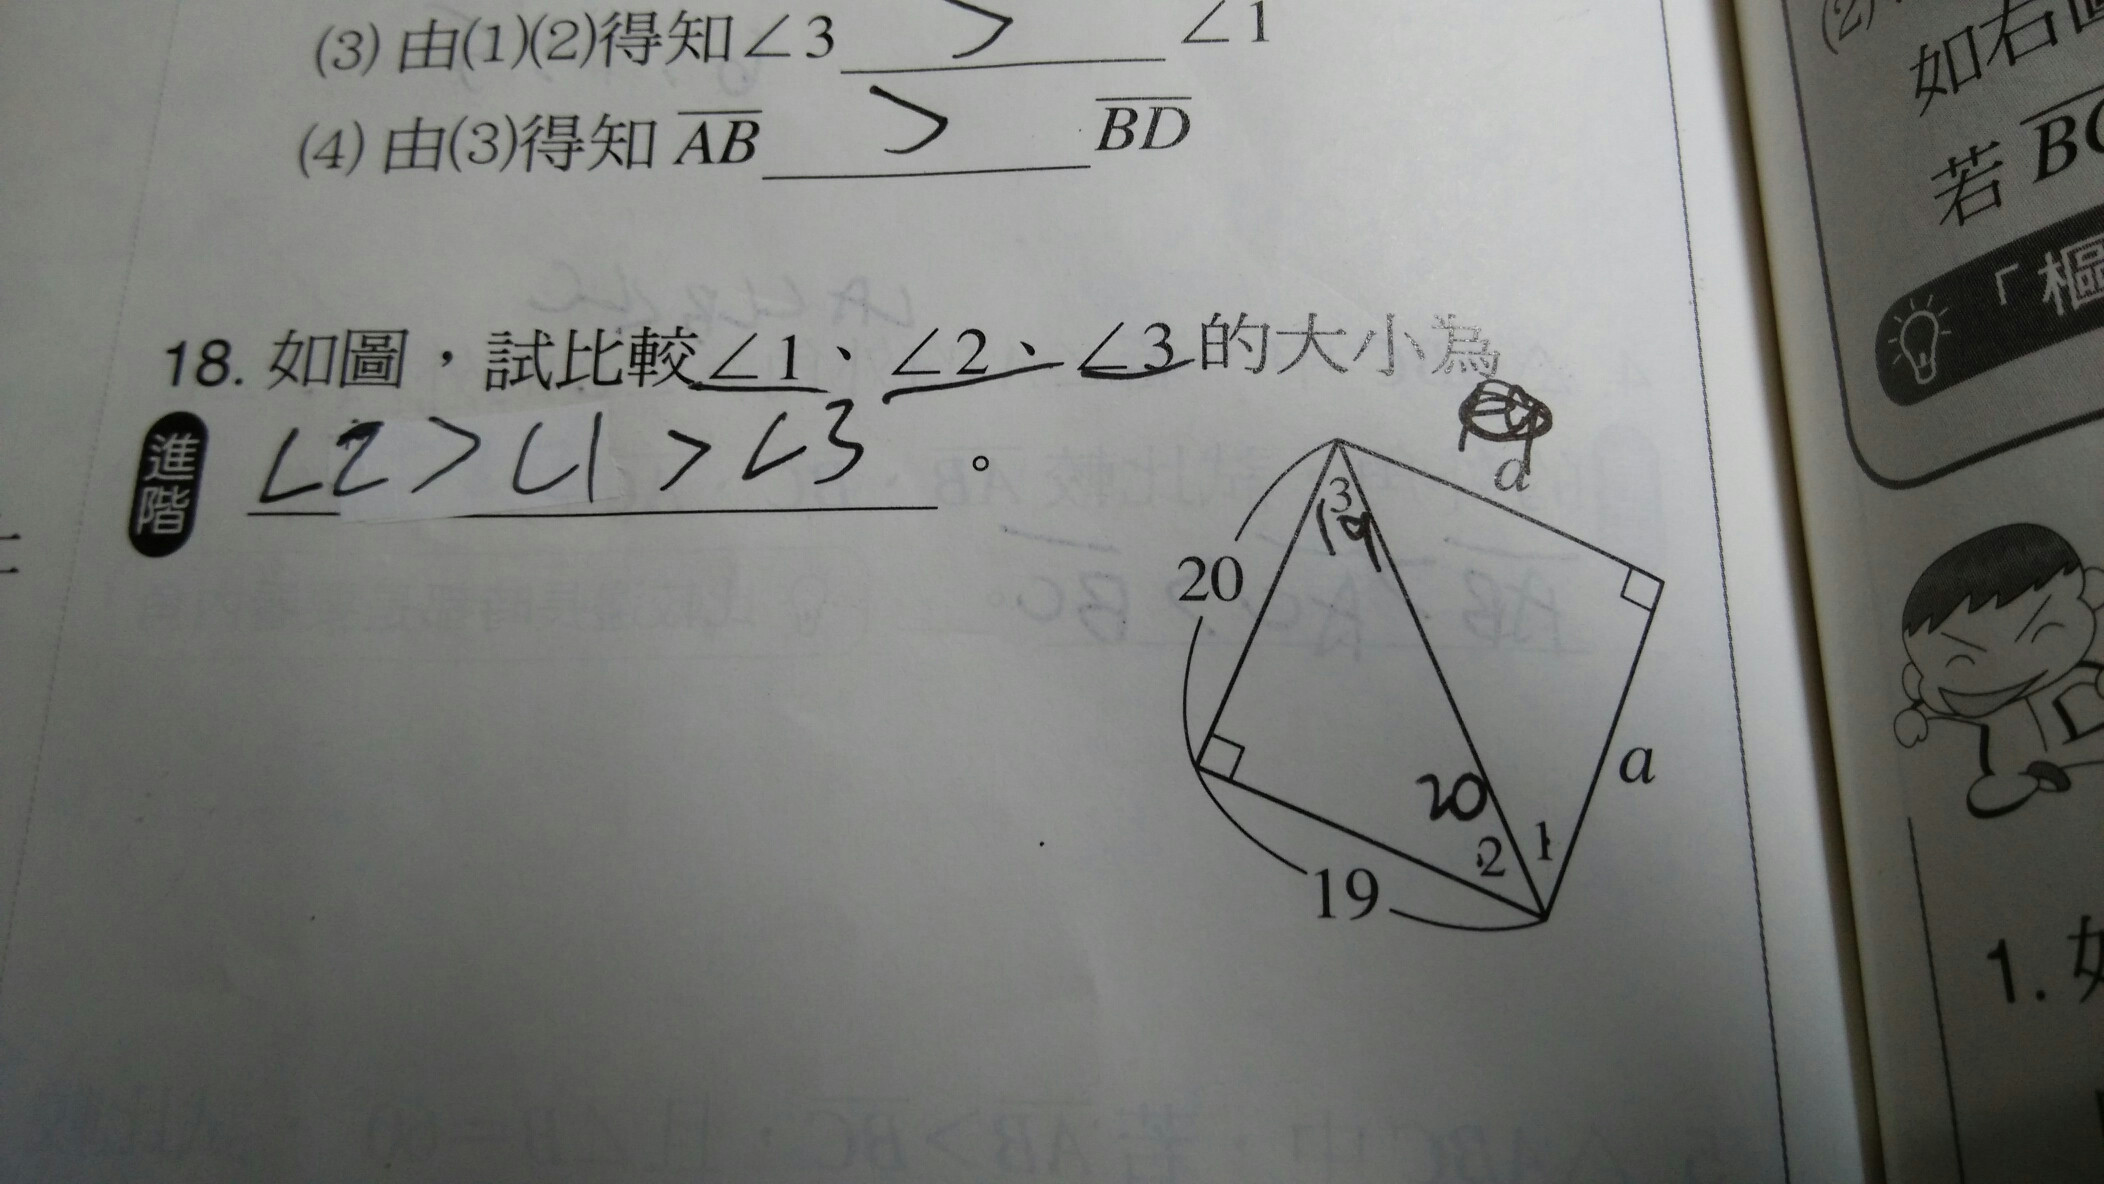 (3) 由(1)(2)得知∠3 > ∠1
(4) 由(3)得知 AB > BD
18. 如圖，試比較∠1、∠2、∠3的大小為
進階
∠2 > ∠1 > ∠3 。
a
3
19
20
a
20
2
1
19
(2)
如右
若 BC
「樞
1. 如